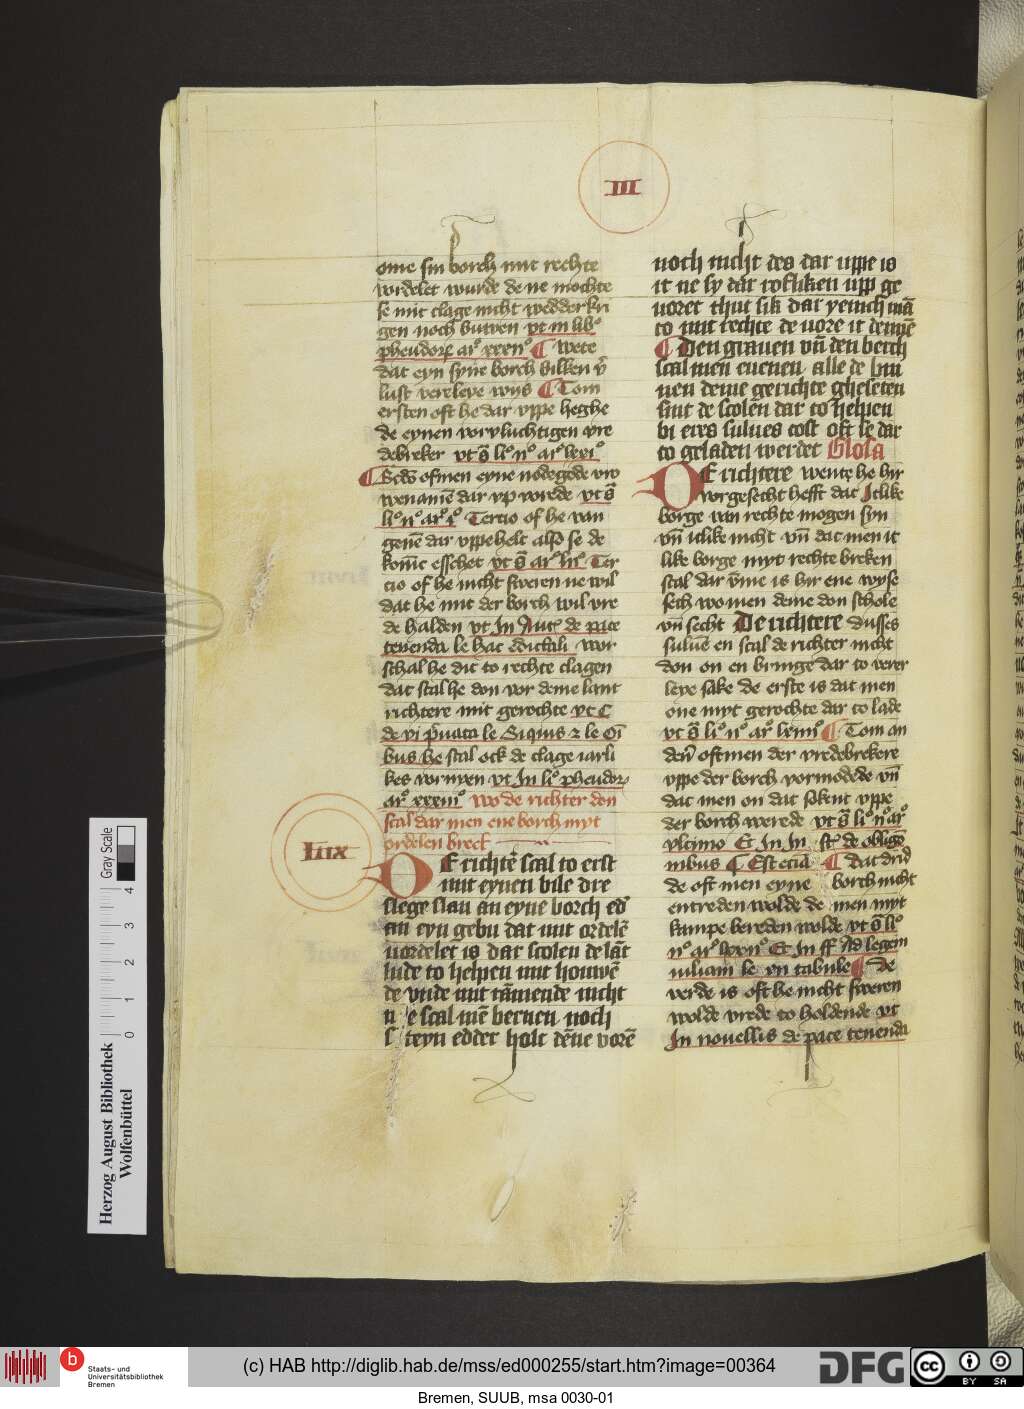 III
ome sin borch mit rechte
vordelet wurde de ne mochte
se mit clage nicht wedderkri
gen noch buwen vt in libº
pheudorꝝ arº xxxııº ¶ wete
dat eyn syne borch
lust vorleye wys ¶ Tom
ersten oft he dar vppe heghe
de eynen vorvluchtigen vre
debreker vt s̄ liº ııº arº lxviº
¶ Scd̄s ofmen eyne nodegede vro
wenamē dar vp vorde vt s̄
liº ııº arº iº Tercio of he van
genē dar vppehelt also se de
komē esschet vt s̄ arº
Ter
cio of he nicht sweren ne wil
dat he mit der borch wil vre
de halden vt In Autē de pace
tenenda le hac edictali wor
schal he dit to rechte clagen
dat scal he don vor deme lant
richtere mit gerochte vt C
de vi p̄uata le Siquis ⁊ le Oī
bus he scal ock de clage iarli
kes vornyen vt In liº pheudorꝝ
arº xxxıııº wo de richter don
scal dar men ene borch myt
ordelen breck
Lııx
DE richtē scal to erst
mit eynen bile dre
slege slan an eyne borch ed̓
an eyn gebu dat mit ordelē
uordelet is dar scolen de lāt
lude to helpen mit houwē
de vnde mit rāmende nicht
n e scal mē bernen noch
s teyn edder holt dēne vorē
noch nicht des dar vppe is
it ne sy dar rofliken upp ge
uoret thut sik dar yenich mā
to mit rechte de uore it dennē
¶ Den grauen vn̄ den berch
scal men euenen alle de bin
nen deme gerichte gheseten
sint de scolen dar to helpen
bi eres sulues cost oft se dar
to geladen werdet Glosa
DE richtere wente he hir
vorgesecht hefft dat Iclike
borge van rechte mogen syn
vn̄ iclike nicht vn̄ dat men it
like borge myt rechte breken
scal dar v̄me is hir ene wyse
sech wo men deme don schole
vn̄ secht De richtere dusses
suluē en scal de richter nicht
don on en bringe dar to verer
leye sake de erste is dat men
one myt gerochte dar to lade
vt s̄ liº ııº arº lxııııº ¶ Tom an
dern̄ oftmen der vredebrekere
vppe der borch vormodede vn̄
dat men on dat sokent vppe
der borch werede vt s̄ liº ııº arº
vltimo Et In In st͞ de obligō
nibus ¶ Est eciā ¶ Dat drid̓
de oft men eyne borch nicht
entreden wolde de men myt
kampe bereden wolde vt s̄ liº
ııº arº lxxııº Et In ff Ad legem
iuliam le vn tabule ¶ De
verde is oft he nicht sweren
wolde vrede to holdende vt
In nouellis de pace tenenda
Herzog August Bibliothek
Wolfenbüttel
Gray Scale
0 1 2 3 4
Staats- und
Universitätsbibliothek
Bremen
(c) HAB http://diglib.hab.de/mss/ed000255/start.htm?image=00364
DFG
cc BY SA
Bremen, SUUB, msa 0030-01